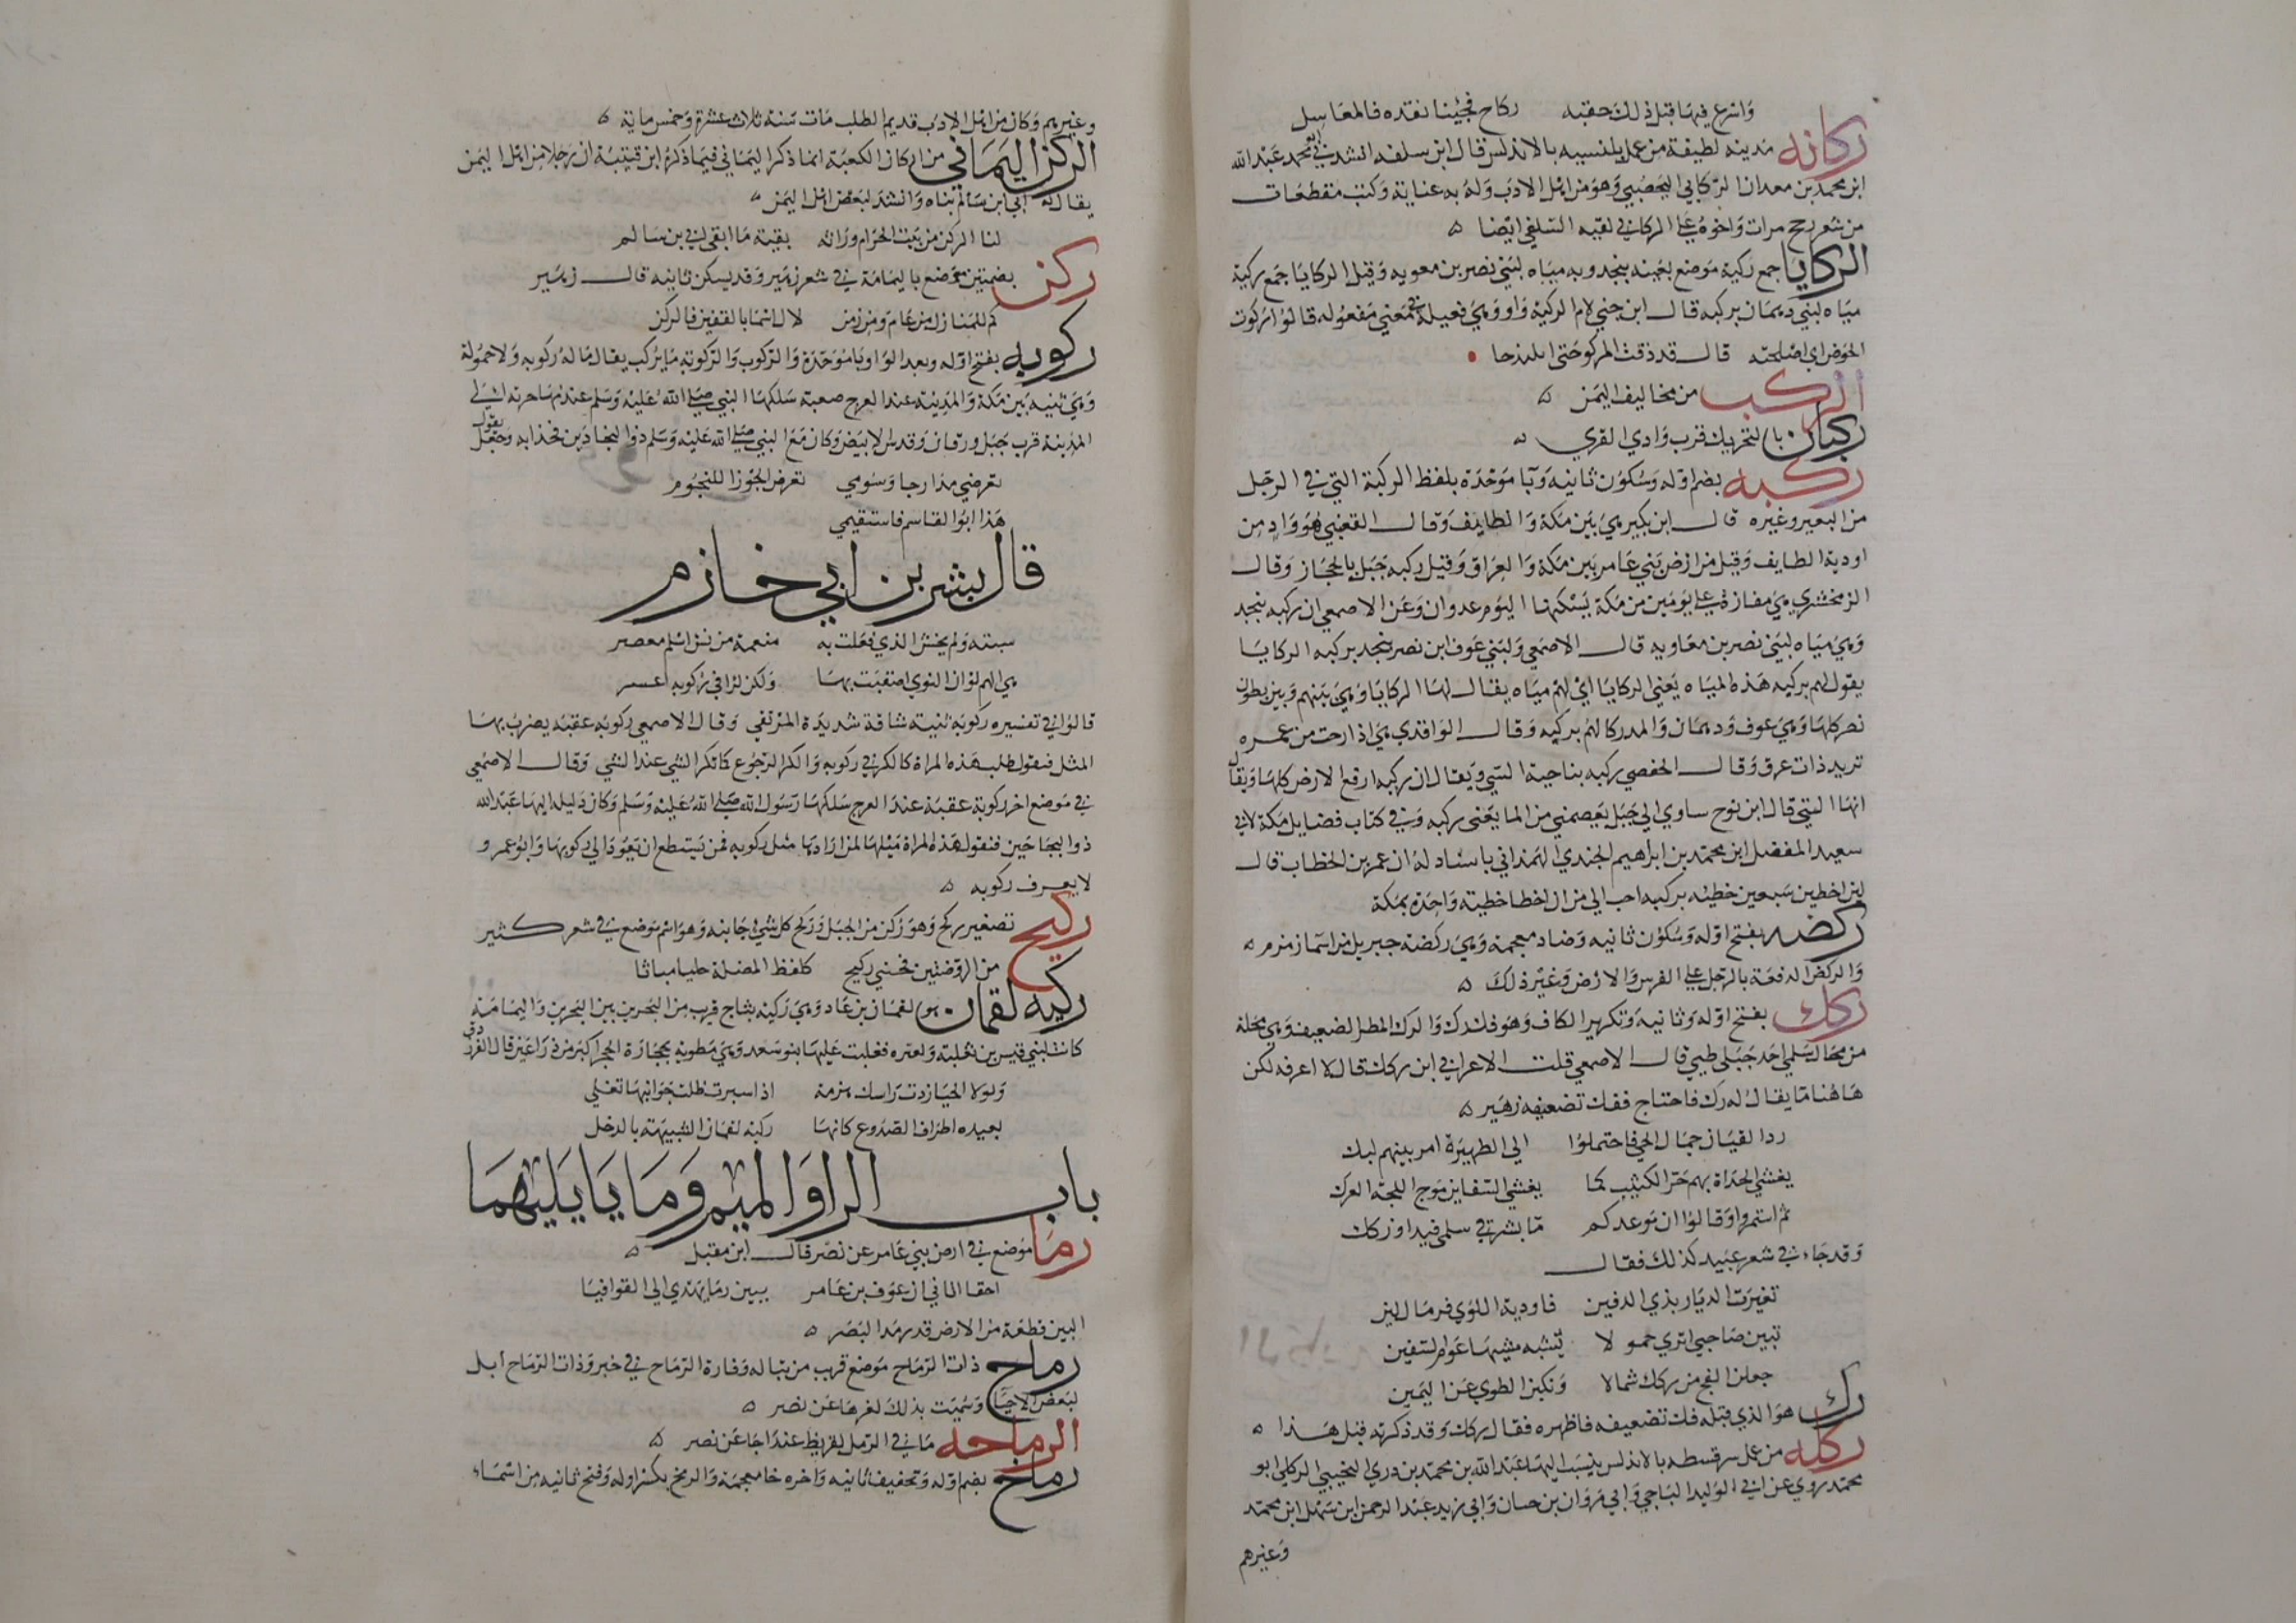 وَاسرع فيهَا قبل ذلك حقبه ركاح فجئنا نقده فالمعاسل
ركانه مَدينه لطيفة من عمل بلنسيه بالاندلس قال ابن سلفه انشدني ابو محمد عَبد الله
ابن محمد بن معدان الركاني اليحصبي وَهوَ من اهل الادب وَله به عناية وَكتب مقطعَات
من شعر بح مرات وَاخوه علي الركاني لقيه السلفي ايضا
الركايا جمع ركية مَوضع بعَينه بنجد وبه ميَاه لبَني نصر بن معويه وَقيل الركايا جمَع ركية
ميَاه لبني دهمَان بركبه قال ابن جني لام الركية وَاو وَهي فعيلة في مَعني مَفعوله قالوُا ركوت
الحَوض اي اصلحته قال قد ذقت المركو حَتي ابلندحا
الركب من مخاليف اليَمن
ركبان بالتحريك قرب وَادي القري
ركبه بضم اوله وَسُكوُن ثانيه وَبا مَوَحَدَة بلفظ الركبة التي في الرجل
من البعير وغيره قال ابن بكير هي بَين مَكة وَالطايف وَقال القعنبي هُو وَاد من
اودية الطايف وَقيل من ارض بَني عَامر بين مَكة وَالعراق وَقيل ركبه جَبَل بالحجَاز وَقال
الزمخشري هي مفازة علي يوَمين من مَكة يَسكنهَا اليَوم عدوان وَعَن الاصمعي ان ركبه بنجد
وَهي ميَاه لبَني نصر بن معَاويه قال الاصمَعي وَلبني عَوف ابن نصر بنجد بركبه الركايَا
يقول لهم بركبه هَذه الميَاه يَعني الركايا اي لهم ميَاه يقال لهَا الركايَا وَهي بَينهم وَبين بطون
نصر كلهَا وَهي عوف وَدهمَان وَالمدركا لهم بركبه وَقال الوَاقدي هي اذا رحت من غمره
تريد ذات عرق وَقال الحفصي ركبه بناحية السي وَيقال ان ركبه ارفع الارض كلهَا وَيقال
انهَا التي قال ابن نوح ساوي الي جَبَل يَعصمني من الما يَعني ركبه وَفي كتاب فضايل مَكة لابي
سعيد المفضل ابن محمّد بن ابراهيم الجندي الهمداني باسناد لهُ ان عمر بن الخطاب قال
لان اخطين سَبعين خطيئه بركبه احب الي من ان اخطا خطيئه وَاحِدَة بمَكة
ركضه بفتح اوله وَسُكوُن ثانيه وَضاد معجمة وَهي ركضة جبريل من اسَما زمزم
وَالركض الدفعَة بالرجل علي الفرس وَالارض وَغيرَ ذلك
ركك بفتح اوّله وَثانيه وَتكرير الكاف وَهوَ فك رك وَالرك المطر الضعيف وَهي محلة
من محال سَلمي احَد جَبَلي طيي قال الاصمعي قلت لاعرابي ابن ركك قال لا اعرفه لكن
هَاهُنا مَا يقال له رك فاحتاج ففك تضعيفه زهَير
ردا لقيان جمَال الحي فاحتملوُا الي الظهيَرة امر بينهم لبك
يغشي الحدَاة بهم حَر الكثيب كما يغشي السَفاين مَوج اللجة العرك
ثم استمروا وَقالوُا ان مَوعدكم مَا بشرقي سلمي فيد او ركك
وَقد جَاء في شعر عبيد كذلك فقال
تغيَرت الديَار بذي الدفين فاودية اللوي فرمَال لين
تبين صَاحبي اتري حمولا يُشبه مشيَها عَوم السَفين
جعلن الفج من ركك شمالا وَنكبن الطوي عَن اليَمين
رك هوَ الذي قبله فك تضعيفه فاظهره فقال ركك وَقد ذكرته قبل هَذا
ركله من عمل سرقسطه بالاندلس ينسَب اليهَا عَبد الله بن محمّد بن دري التجيبي الركلي ابو
محمّد روي عن ابي الوَليد البَاجي وَابي مَروَان بن حسان وَابي زيد عَبد الرحمن ابن سَهل ابن محمّد
وَغيرهم
وغيرهم وَكان من اهل الادَب قديم الطلب مَات سَنة ثلاث عشرة وَخمس ماية
الركن اليَمَاني من اركان الكعبَة انما ذكر اليَمَاني فيمَا ذكره ابن قتيبَة ان رَجلا من اهل اليَمن
يقال له ابي ابن سَالم بَناه وَانشد لبَعض اهل اليَمن
لنا الركن من بَيت الحرَام ورَاثه بقيّة مَا ابقي ابي بن سَالم
ركن بضمتين مَوضع باليَمامَة في شعر زهَير وَقد يسكن ثانيه قال زهَير
كم للمَنازل من عَام وَمن زمن لال اسمَا بالقفين فالركن
ركوبه بفتح اوّله وبعد الوَاو با مُوَحّدة وَالركوب وَالركوبه مَا يركب يقال مَا لهُ ركوبه وَلا حمُولة
وَهي ثنيه بَين مَكة وَالمَدينة عند العرج صعبة سَلكهَا النبي صَلي اللهُ عَليه وَسَلم عند مهَاجرته الي
المَدينة قرب جَبَل ورقان وَقدس الابيَض وَكان مَعَ النبي صَلي الله عَليه وَسَلم ذو البجادَين فحدَا به وَجَعَل يقول
تعرضي مَدارجا وَسُومي تعرض الجَوزا للنجُوم
هَذا ابوُ القاسم فاستقيمي
قال بشر بن ابي خازم
سبته وَلم يخش الذي فعَلت به منعمة من نش اسلم معصر
هي الهم لوَ ان النوي اصقبَت بهَا وَلكن كرا في ركوبه اعسر
قالوُا في تفسيره ركوبه ثنيه شاقة شديَدة المرتقي وَقال الاصمعي ركوبه عقبَه يضربُ بهَا
المثل فيقول طلب هَذه المراة كالكر في ركوبه وَالكر الرجوُع كما تكر الشي عند الشي وَقال الاصمعي
في مَوضع اخر ركوبة عقبَة عند العرج سَلكهَا رَسوُل الله صَلي اللهُ عَليه وَسَلم وَكان دَليله اليهَا عَبد الله
ذو البجَادَين فيقول هَذه المراة مثلهَا لمن ارَادهَا مثل ركوبه فمن يَستطيع ان يَعوُد الي ركوبهَا وَابوُ عمرو
لا يعرف ركوبه
ركيح تصغير ركح وَهوَ رُكن من الجَبَل وَرُكح كل شي جَانبه وَهوَ اسم مَوضع في شعر كثير
من الرَوضتين فجَنبي ركيح كلفظ المضلة حليا مباثا
ركيه لقمان هو لقمَان بن عَاد وَهيَ ركيّة بثاج قريب من البَحرين بين البَحرين وَاليَمامَة
كانت لبَني قيس بن ثعلبَة وَلعنزه فغلبت عَليهَا بنو سَعد وَهي مَطويه بحجَارَة الحجر اكبر من ذرَاعين قال الفرزدق
وَلولا الحيَا زدت رَاسك هزمة اذا سبرت ظلت جَوَانبهَا تغلي
بعيده اطرَاف الصَدوع كانهَا ركية لقمان الشبيهة بالدحل
باب الراوَالميم وَمَا يايَليهمَا
رمَا مَوضع في ارض بني عَامر عن نصَر قال ابن مقبل
احقا اتاني ان عَوف بن عَامر ببين رمَا يهَدي الي القوافيَا
البين قطعَة من الارض قدر مَد البَصَر
رماح ذات الرمَاح مَوضع قريب من تبَاله وَقارة الرَمَاح في خبر وَذات الرمَاح ابل
لبَعض الاحيَا وَسُميَت بذلك لعزهَا عَن نصر
الرماحه مَا في الرمل لقريظ عند اجَا عَن نصر
رماخ بضم اوله وَتخفيف ثانيه وَاخره خا معجمَة وَالرمخ بكسر اوله وَفتح ثانيه من اسمَاء